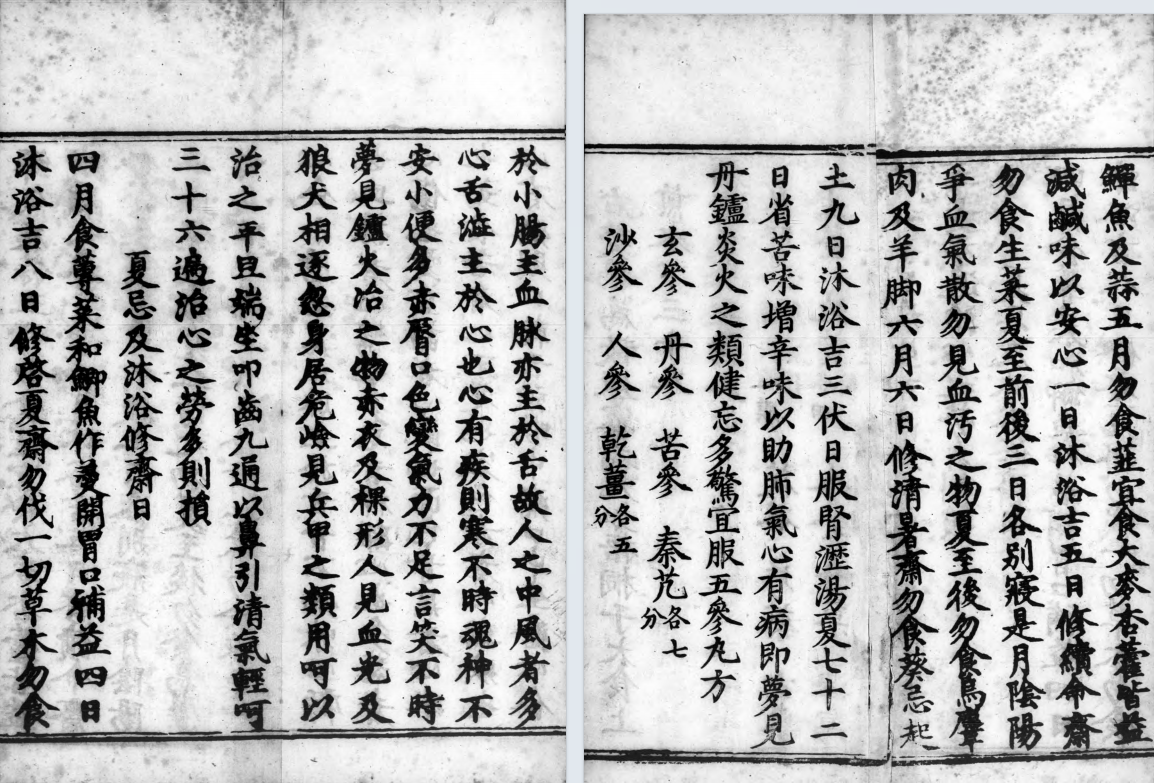 於小腸主血脉亦主於舌故人之中風者多
心舌澁主於心也心有疾則寒不時魂神不
安小便多赤脣口色變氣力不足言笑不時
夢見鑪火冶之物赤衣及裸形人見血光及
狼犬相逐忽身居危嶮見兵甲之類用呵以
治之平旦端坐叩齒九遍以鼻引清氣輕呵
三十六遍治心之勞多則損
夏忌及沐浴修齋日
四月食蓴菜和鯽魚作羹開胃口補益四日
沐浴吉八日修啓夏齋勿伐一切草木勿食
鱓魚及蒜五月勿食韮宜食大麥杏藿皆益
減鹹味以安心一日沐浴吉五日修續命齋
勿食生菜夏至前後三日各別寢是月陰陽
爭血氣散勿見血汚之物夏至後勿食鳥麞
肉及羊脚六月六日修清暑齋勿食葵忌起
土九日沐浴吉三伏日服腎瀝湯夏七十二
日省苦味增辛味以助肺氣心有病即夢見
丹鑪炎火之類健忘多驚宜服五參丸方
玄參 丹參 苦參 秦艽各七分
沙參 人參 乾薑各五分